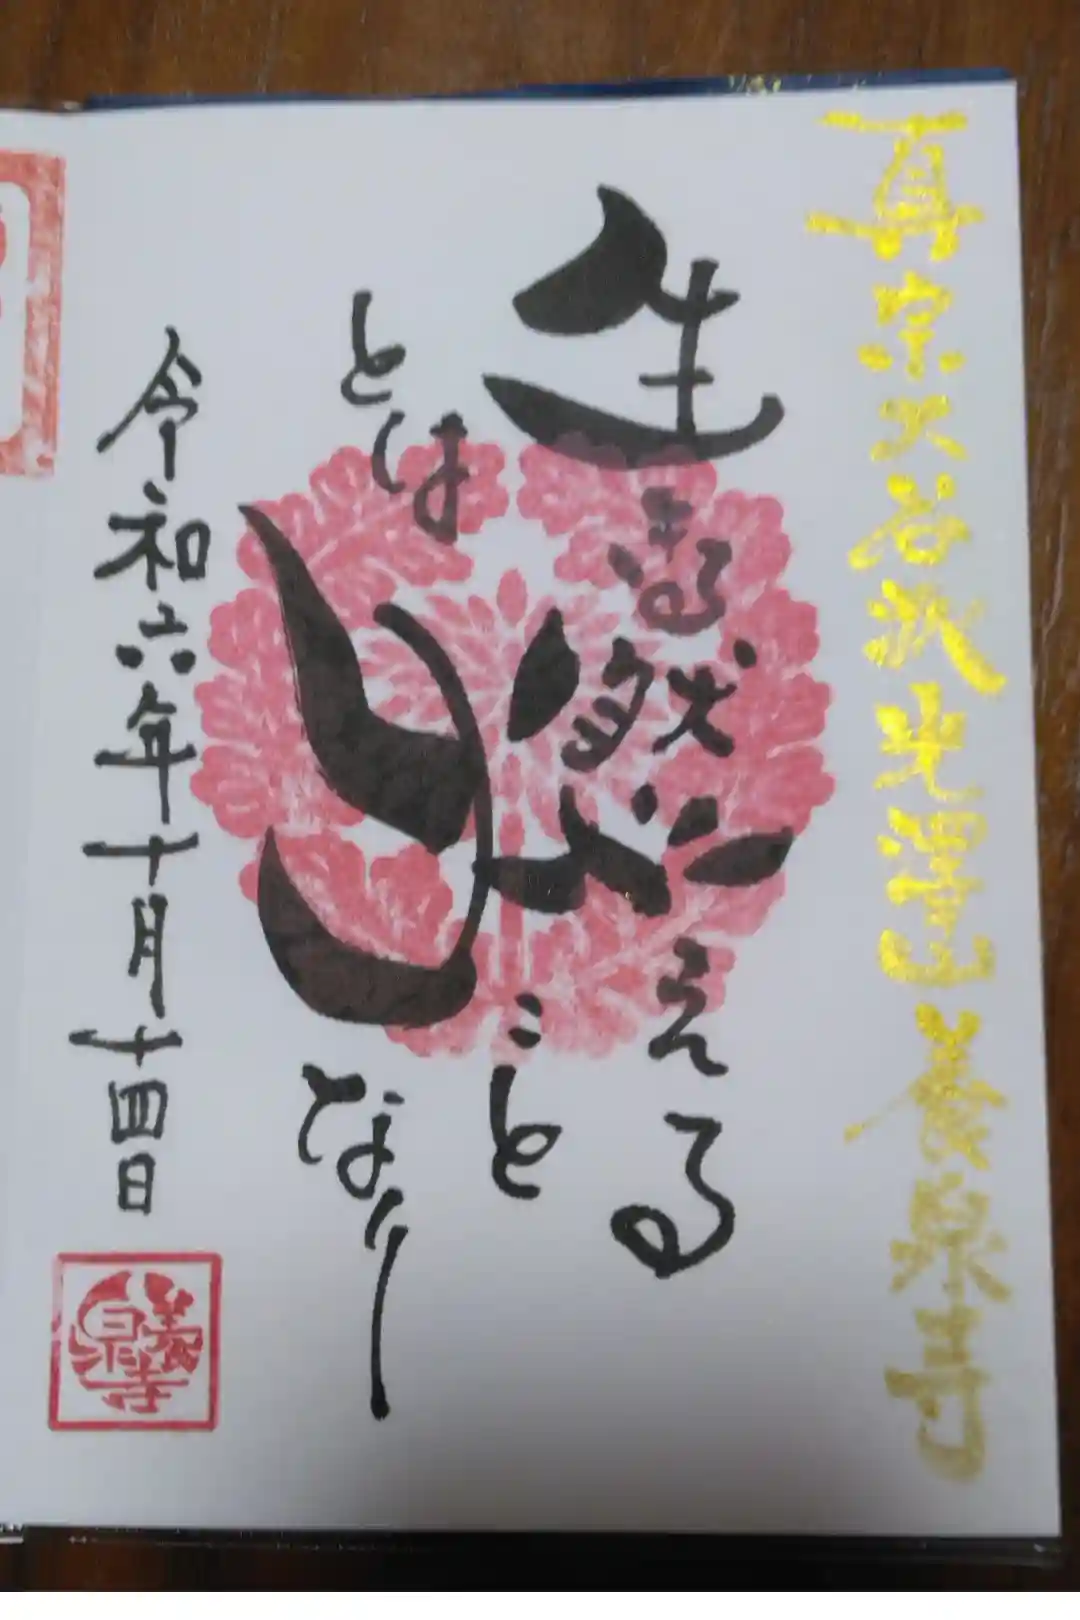 真宗大谷派光澤山養泉寺
生きる
燃える
とは
こと
なり
令和六年十月十四日
養泉寺